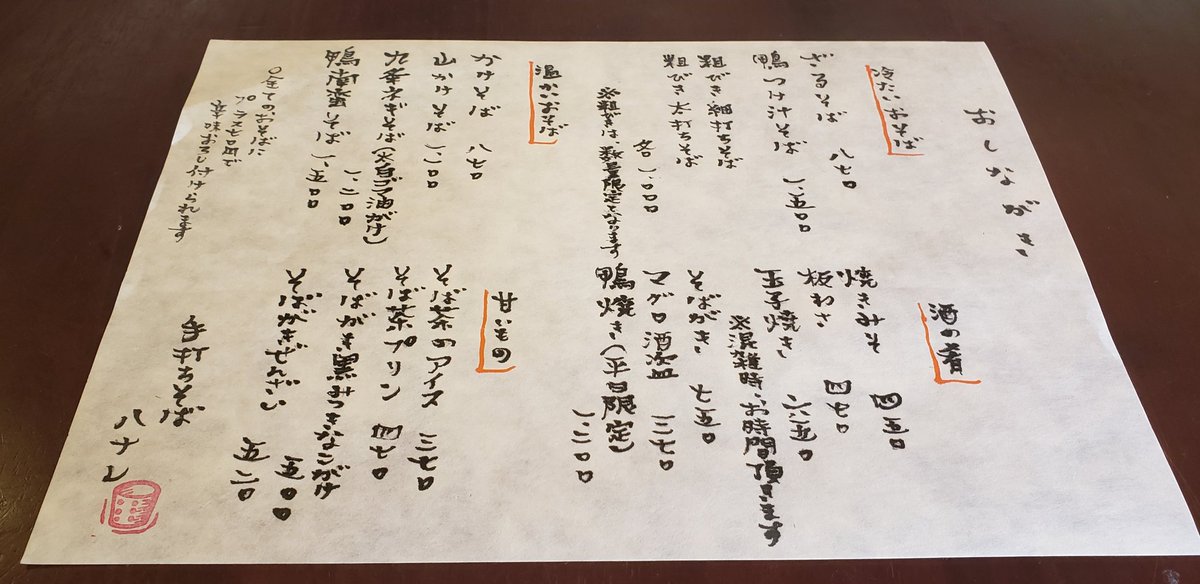 おしながき
冷たいおそば
ざるそば 八七〇
鴨つけ汁そば 一、五〇〇
粗びき細打ちそば
粗びき太打ちそば
各一、〇〇〇
※粗びきは、数量限定となります
温かいおそば
かけそば 八七〇
山かけそば 一、一〇〇
九条ネギそば(火台ゴマ油がけ)
一、二〇〇
鴨南蛮そば 一、五〇〇
○全てのおそばに
プラス七〇円で
辛味おろし付けられます
酒の肴
焼きみそ 四五〇
板わさ 四七〇
玉子焼き 六五〇
※混雑時、お時間頂きます
そばがき 七五〇
マグロ酒盗 三七〇
鴨焼き(平日限定)
一、二〇〇
甘いもの
そば茶のアイス 三七〇
そば茶プリン 四七〇
そばがき黒みつきなこがけ
五〇〇
そばがきぜんざい 五二〇
手打ちそば
ハナレ